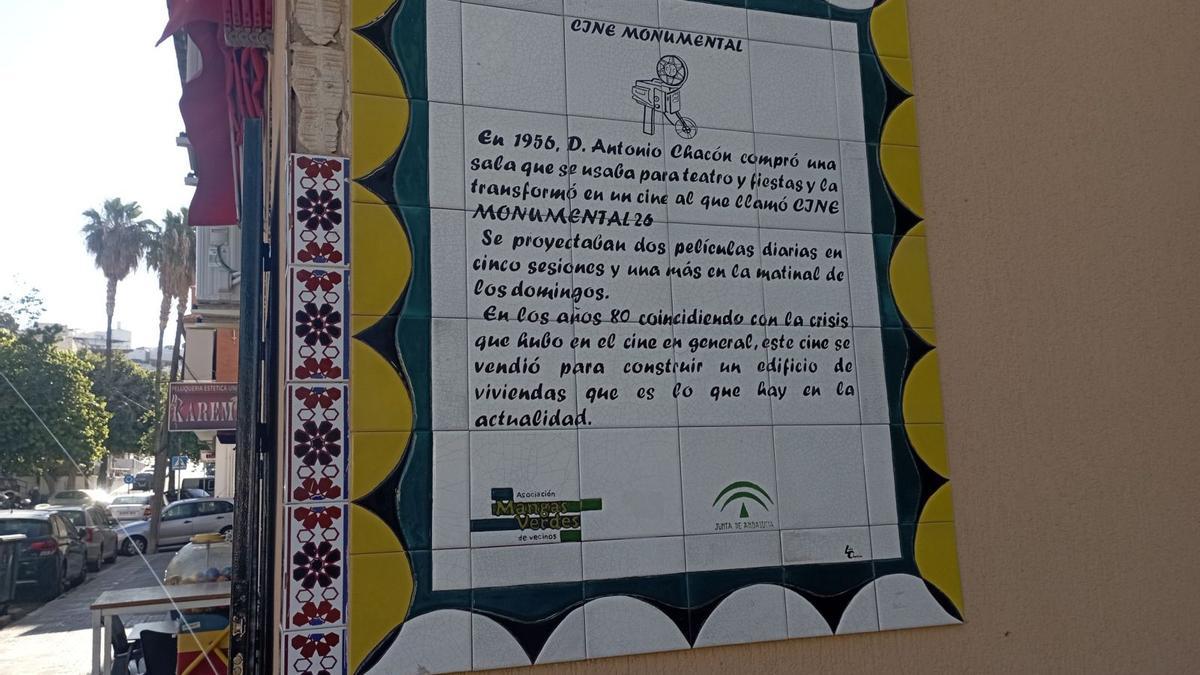 CINE MONUMENTAL
En 1956, D. Antonio Chacón compró una
sala que se usaba para teatro y fiestas y la
transformó en un cine al que llamó CINE
MONUMENTAL 26
Se proyectaban dos películas diarias en
cinco sesiones y una más en la matinal de
los domingos.
En los años 80 coincidiendo con la crisis
que hubo en el cine en general, este cine se
vendió para construir un edificio de
viviendas que es lo que hay en la
actualidad.
Asociación
Mangas
Verdes
de vecinos
JUNTA DE ANDALUCIA
PELUQUERIA ESTETICA
KAREM